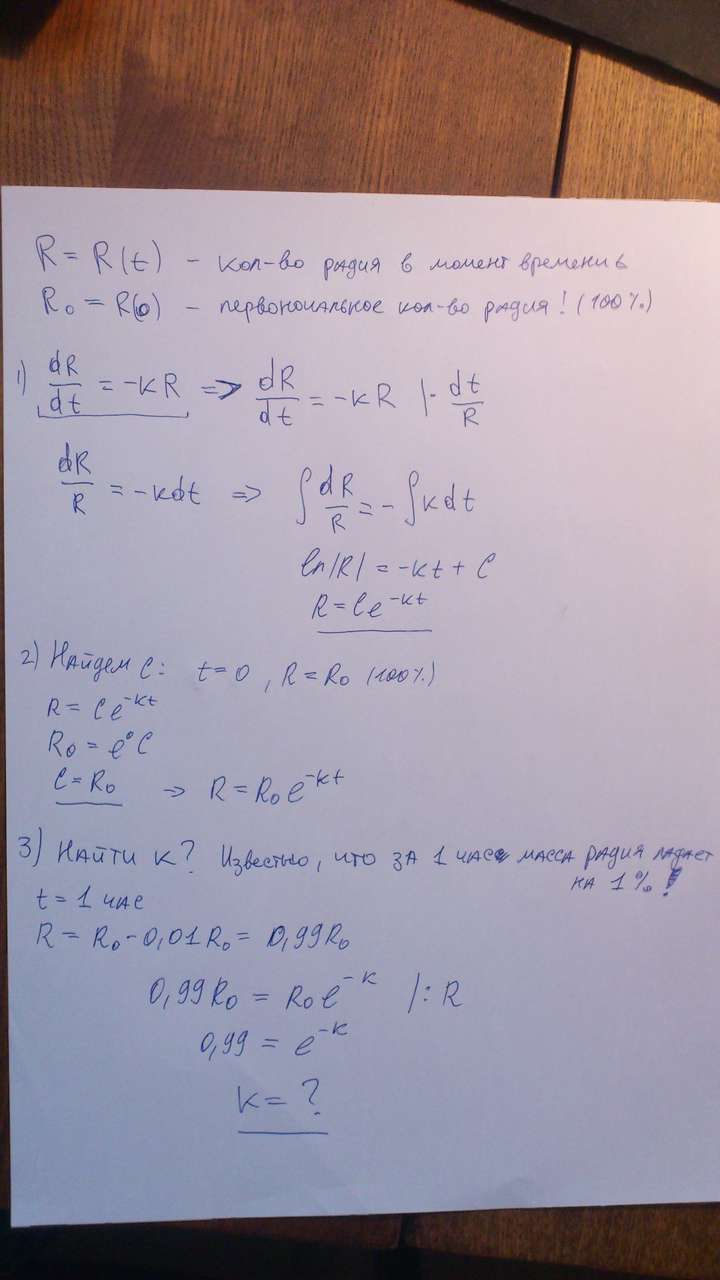 R = R(t) – кол-во радия в момент времени t
R₀ = R(0) – первоначальное кол-во радия! (100%)
1) dR/dt = -кR => dR/dt = -кR |· dt/R
dR/R = -кdt => ∫ dR/R = - ∫ кdt
ln|R| = -кt + C
R = Ce^(-кt)
2) Найдем C: t = 0, R = R₀ (100%)
R = Ce^(-кt)
R₀ = e⁰C
C = R₀ => R = R₀e^(-кt)
3) Найти к? Известно, что за 1 час масса радия падает
на 1%!
t = 1 час
R = R₀ - 0,01R₀ = 0,99R₀
0,99R₀ = R₀e^(-к) |: R
0,99 = e^(-к)
к = ?